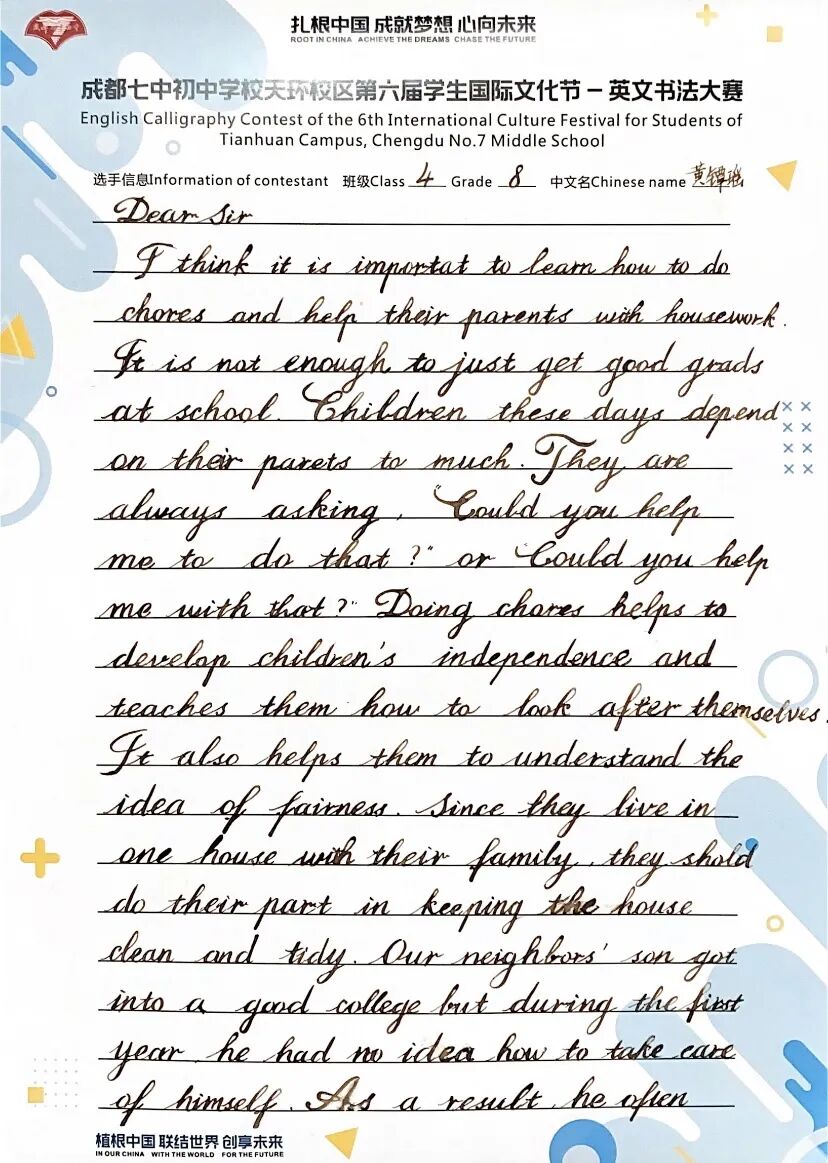 扎根中国 成就梦想 心向未来
ROOT IN CHINA ACHIEVE THE DREAMS CHASE THE FUTURE
成都七中初中学校天环校区第六届学生国际文化节 – 英文书法大赛
English Calligraphy Contest of the 6th International Culture Festival for Students of
Tianhuan Campus, Chengdu No.7 Middle School
选手信息Information of contestant 班级Class 4 Grade 8 中文名Chinese name 黄
Dear Sir
I think it is importat to learn how to do
chores and help their parents with housework.
It is not enough to just get good grads
at school. Children these days depend
on their parets to much. They are
always asking, "Could you help
me to do that?" or "Could you help
me with that?" Doing chores helps to
develop children's independence and
teaches them how to look after themselves.
It also helps them to understand the
idea of fairness. Since they live in
one house with their family, they shold
do their part in keeping the house
clean and tidy. Our neighbors' son got
into a good college but during the first
year, he had no idea how to take care
of himself. As a result, he often
植根中国 联结世界 创享未来
IN OUR CHINA WITH THE WORLD FOR THE FUTURE